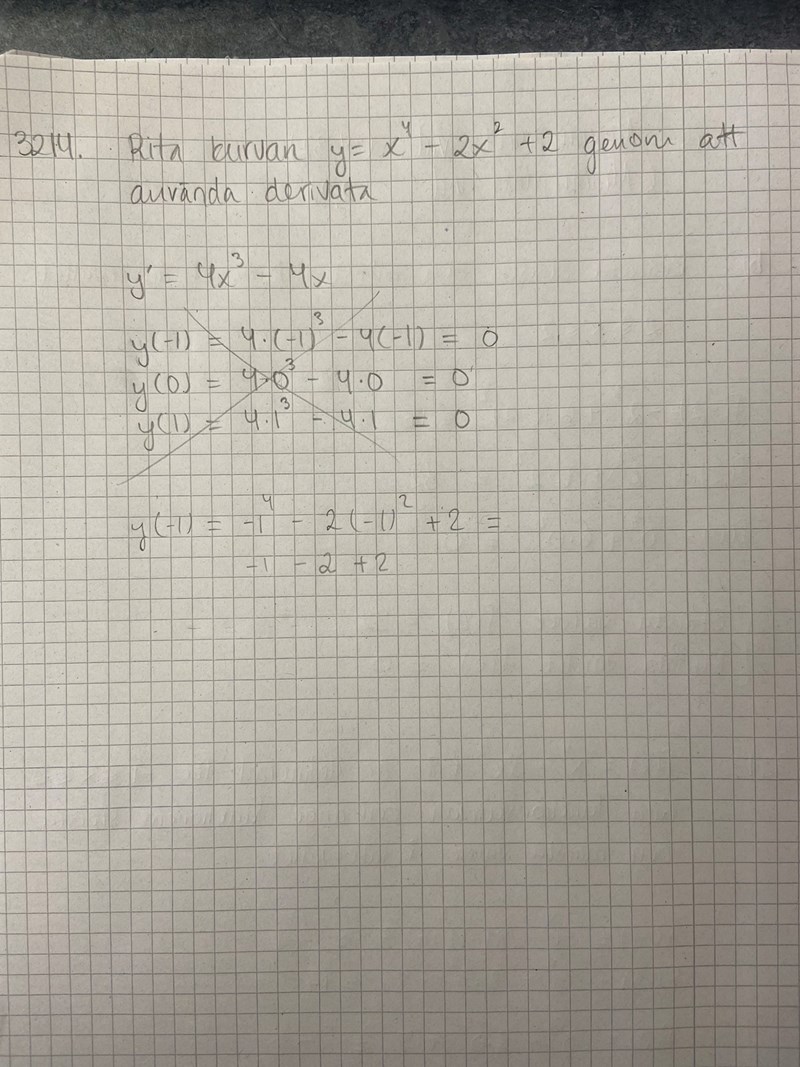 3214. Rita kurvan y = x⁴ - 2x² + 2 genom att
använda derivata
y' = 4x³ - 4x
y(-1) = 4·(-1)³ - 4(-1) = 0
y(0) = 4·0³ - 4·0 = 0
y(1) = 4·1³ - 4·1 = 0
y(-1) = -1⁴ - 2(-1)² + 2 =
-1 - 2 + 2